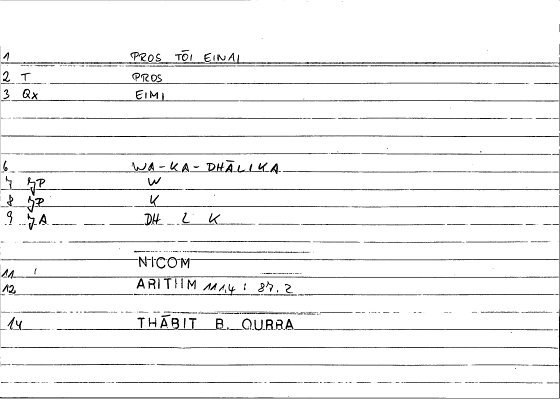 1 PROS TŌI EINAI
2 T PROS
3 Qx EIMI
6 WA-KA-DHĀLIKA
7 W
8 K
9 DH L K
11 NICOM
12 ARITHM 111,4 : 87.2
14 THĀBIT B. QURRA